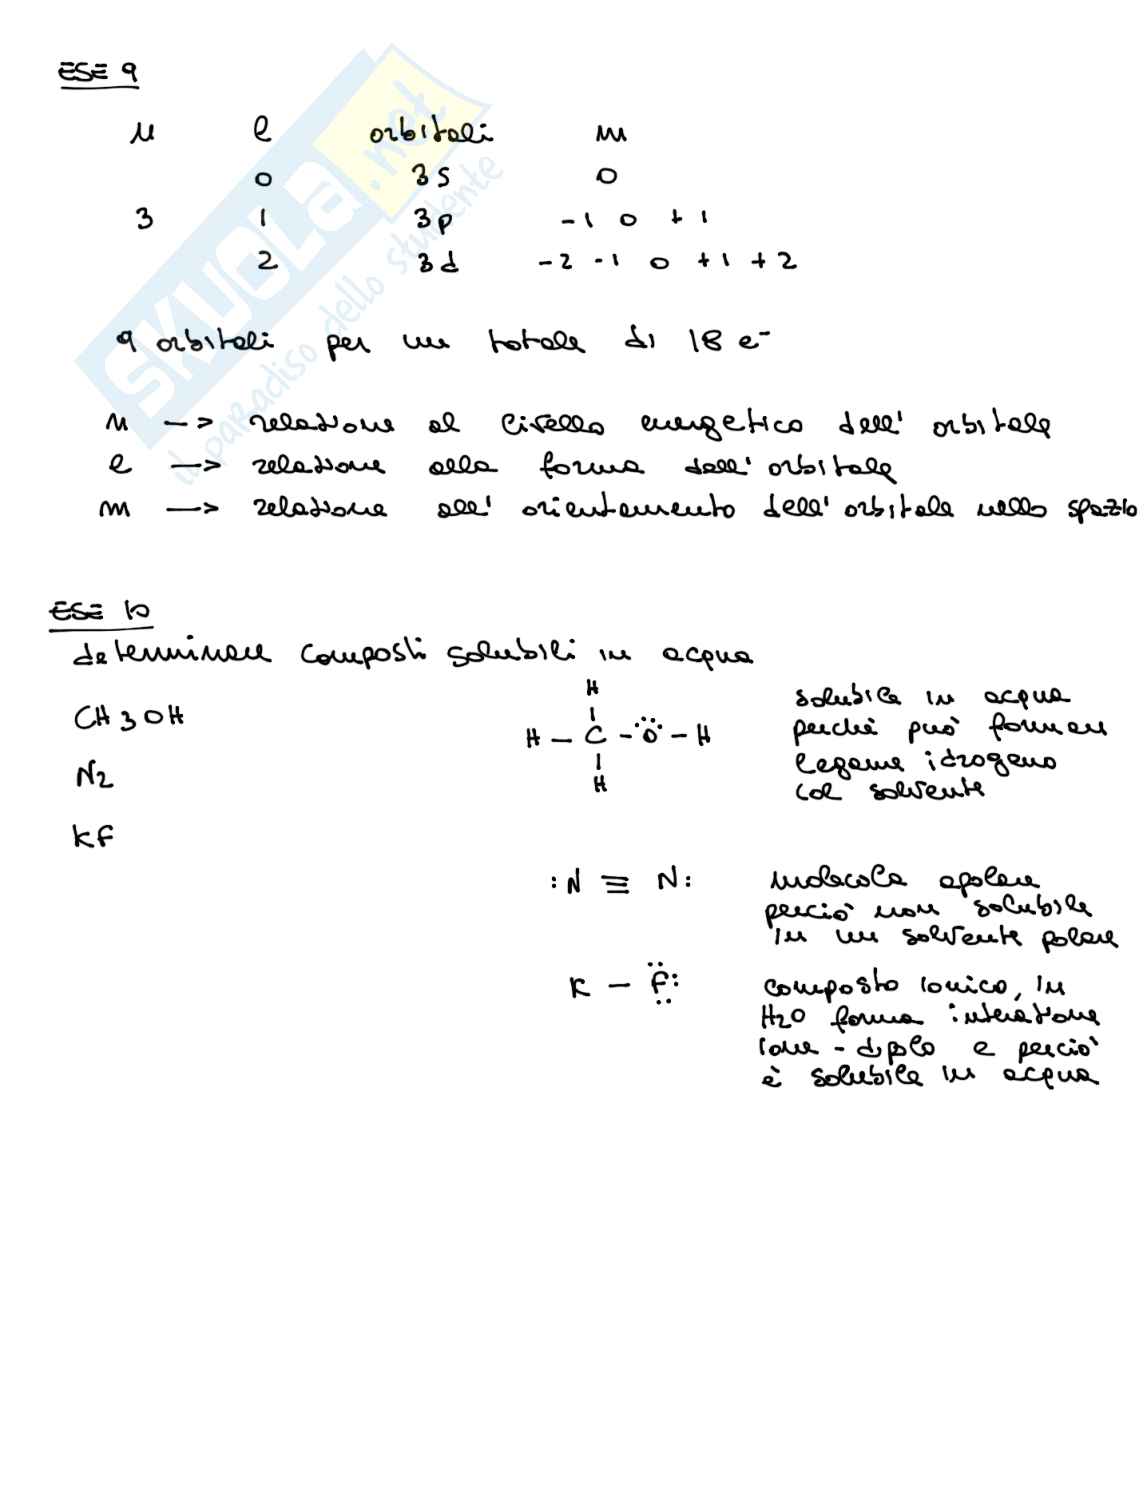 ESE 9
n l orbitali m
0 3s 0
3 1 3p -1 0 +1
2 3d -2 -1 0 +1 +2
9 orbitali per un totale di 18 e-
n --> relazione al livello energetico dell' orbitale
l --> relazione alla forma dell' orbitale
m --> relazione all' orientamento dell' orbitale nello spazio
ESE 10
determinare composti solubili in acqua
CH3OH
N2
KF
H
H - C - O - H
H
solubile in acqua
perchè può formare
legame idrogeno
col solvente
:N ≡ N:
molecola apolare
perciò non solubile
in un solvente polare
K - F:
composto ionico, in
H2O forma interazione
ione - dipolo e perciò
è solubile in acqua
SKUOLA.net
il paradiso dello studente